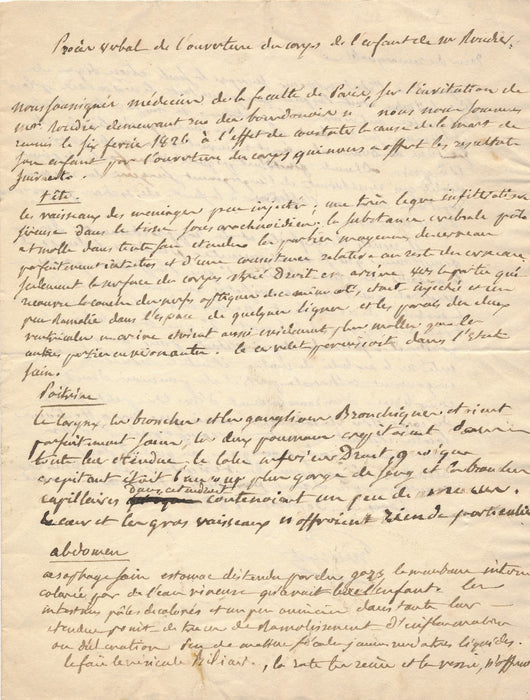 Procès verbal de l'ouverture du corps de l'enfant de mr Rondier
nous soussignés médecins de la faculté de Paris, sur l'invitation de
mr. Rondier demeurant rue des bourdonnois n nous nous sommes
reunis le six fevrier 1826 à l'effet de constater la cause de la mort de
son enfant par l'ouverture du corps qui nous a offert les resultats
suivants.
tête.
les vaisseaux des meninges peu injectés; une très legere infiltration
sereuse dans le tissu sous arachnoidien. la substance cerebrale pâle
et molle dans toute son etendue les parties moyennes du cerveau
parfaitement intactes et d'une consistance relative au reste du cerveau,
seulement la surface du corps strié Droit en arriere vers la partie qui
recouvre la couche du nerf optique du même coté, etoit injectée et un
peu Ramolie dans l'espace de quelques lignes et les parois des deux
ventricules en arriere etoient aussi evidament plus molles que les
autres parties environnantes. le cervelet paroissoit dans l'etat
sain.
Poitrine
le larynx, les bronches et les ganglions Bronchiques etoient
parfaitement sains, les deux poumons crepitoient dans
toute leur etendue. le lobe inferieur Droit, quoique
crepitant etoit beaucoup plus gorgé de sang et les bronches
capillaires contenoient un peu de mucus.
le cœur et les gros vaisseaux n'offroient rien de particulier
abdomen
œsophage sain estomac distendu par des gazs, la membrane interne
colorée par de l'eau vineuse qu'avait bue l'enfant. les
intestins pâles decolorés et un peu amincis dans toute leur
etendue point de traces de Ramolissement d'inflamation
ou d'ulceration peu de matieres fécales jaunes verdatres liquides.
le foie la vesicule biliaire, la rate les reins et la vessie, n'offroient